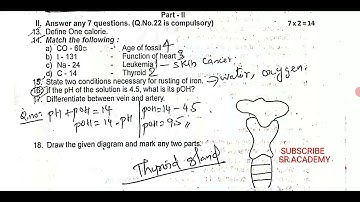 Part - II
II. Answer any 7 questions. (Q.No.22 is compulsory) 7 x 2 = 14
13. Define One calorie.
14. Match the following :
a) CO - 60 - Age of fossil 4
b) I - 131 - Function of heart 3
c) Na - 24 - Leukemia 1 - skin cancer.
d) C - 14 - Thyroid 2
15. State two conditions necessary for rusting of iron. → water, oxygen.
16. If the pH of the solution is 4.5, what is its pOH?
17. Differentiate between vein and artery.
Q.no: pH + pOH = 14 pOH = 14 - 4.5
pOH = 14 - pH pOH = 9.5
18. Draw the given diagram and mark any two parts.
Thyroid gland
SUBSCRIBE
SR.ACADEMY